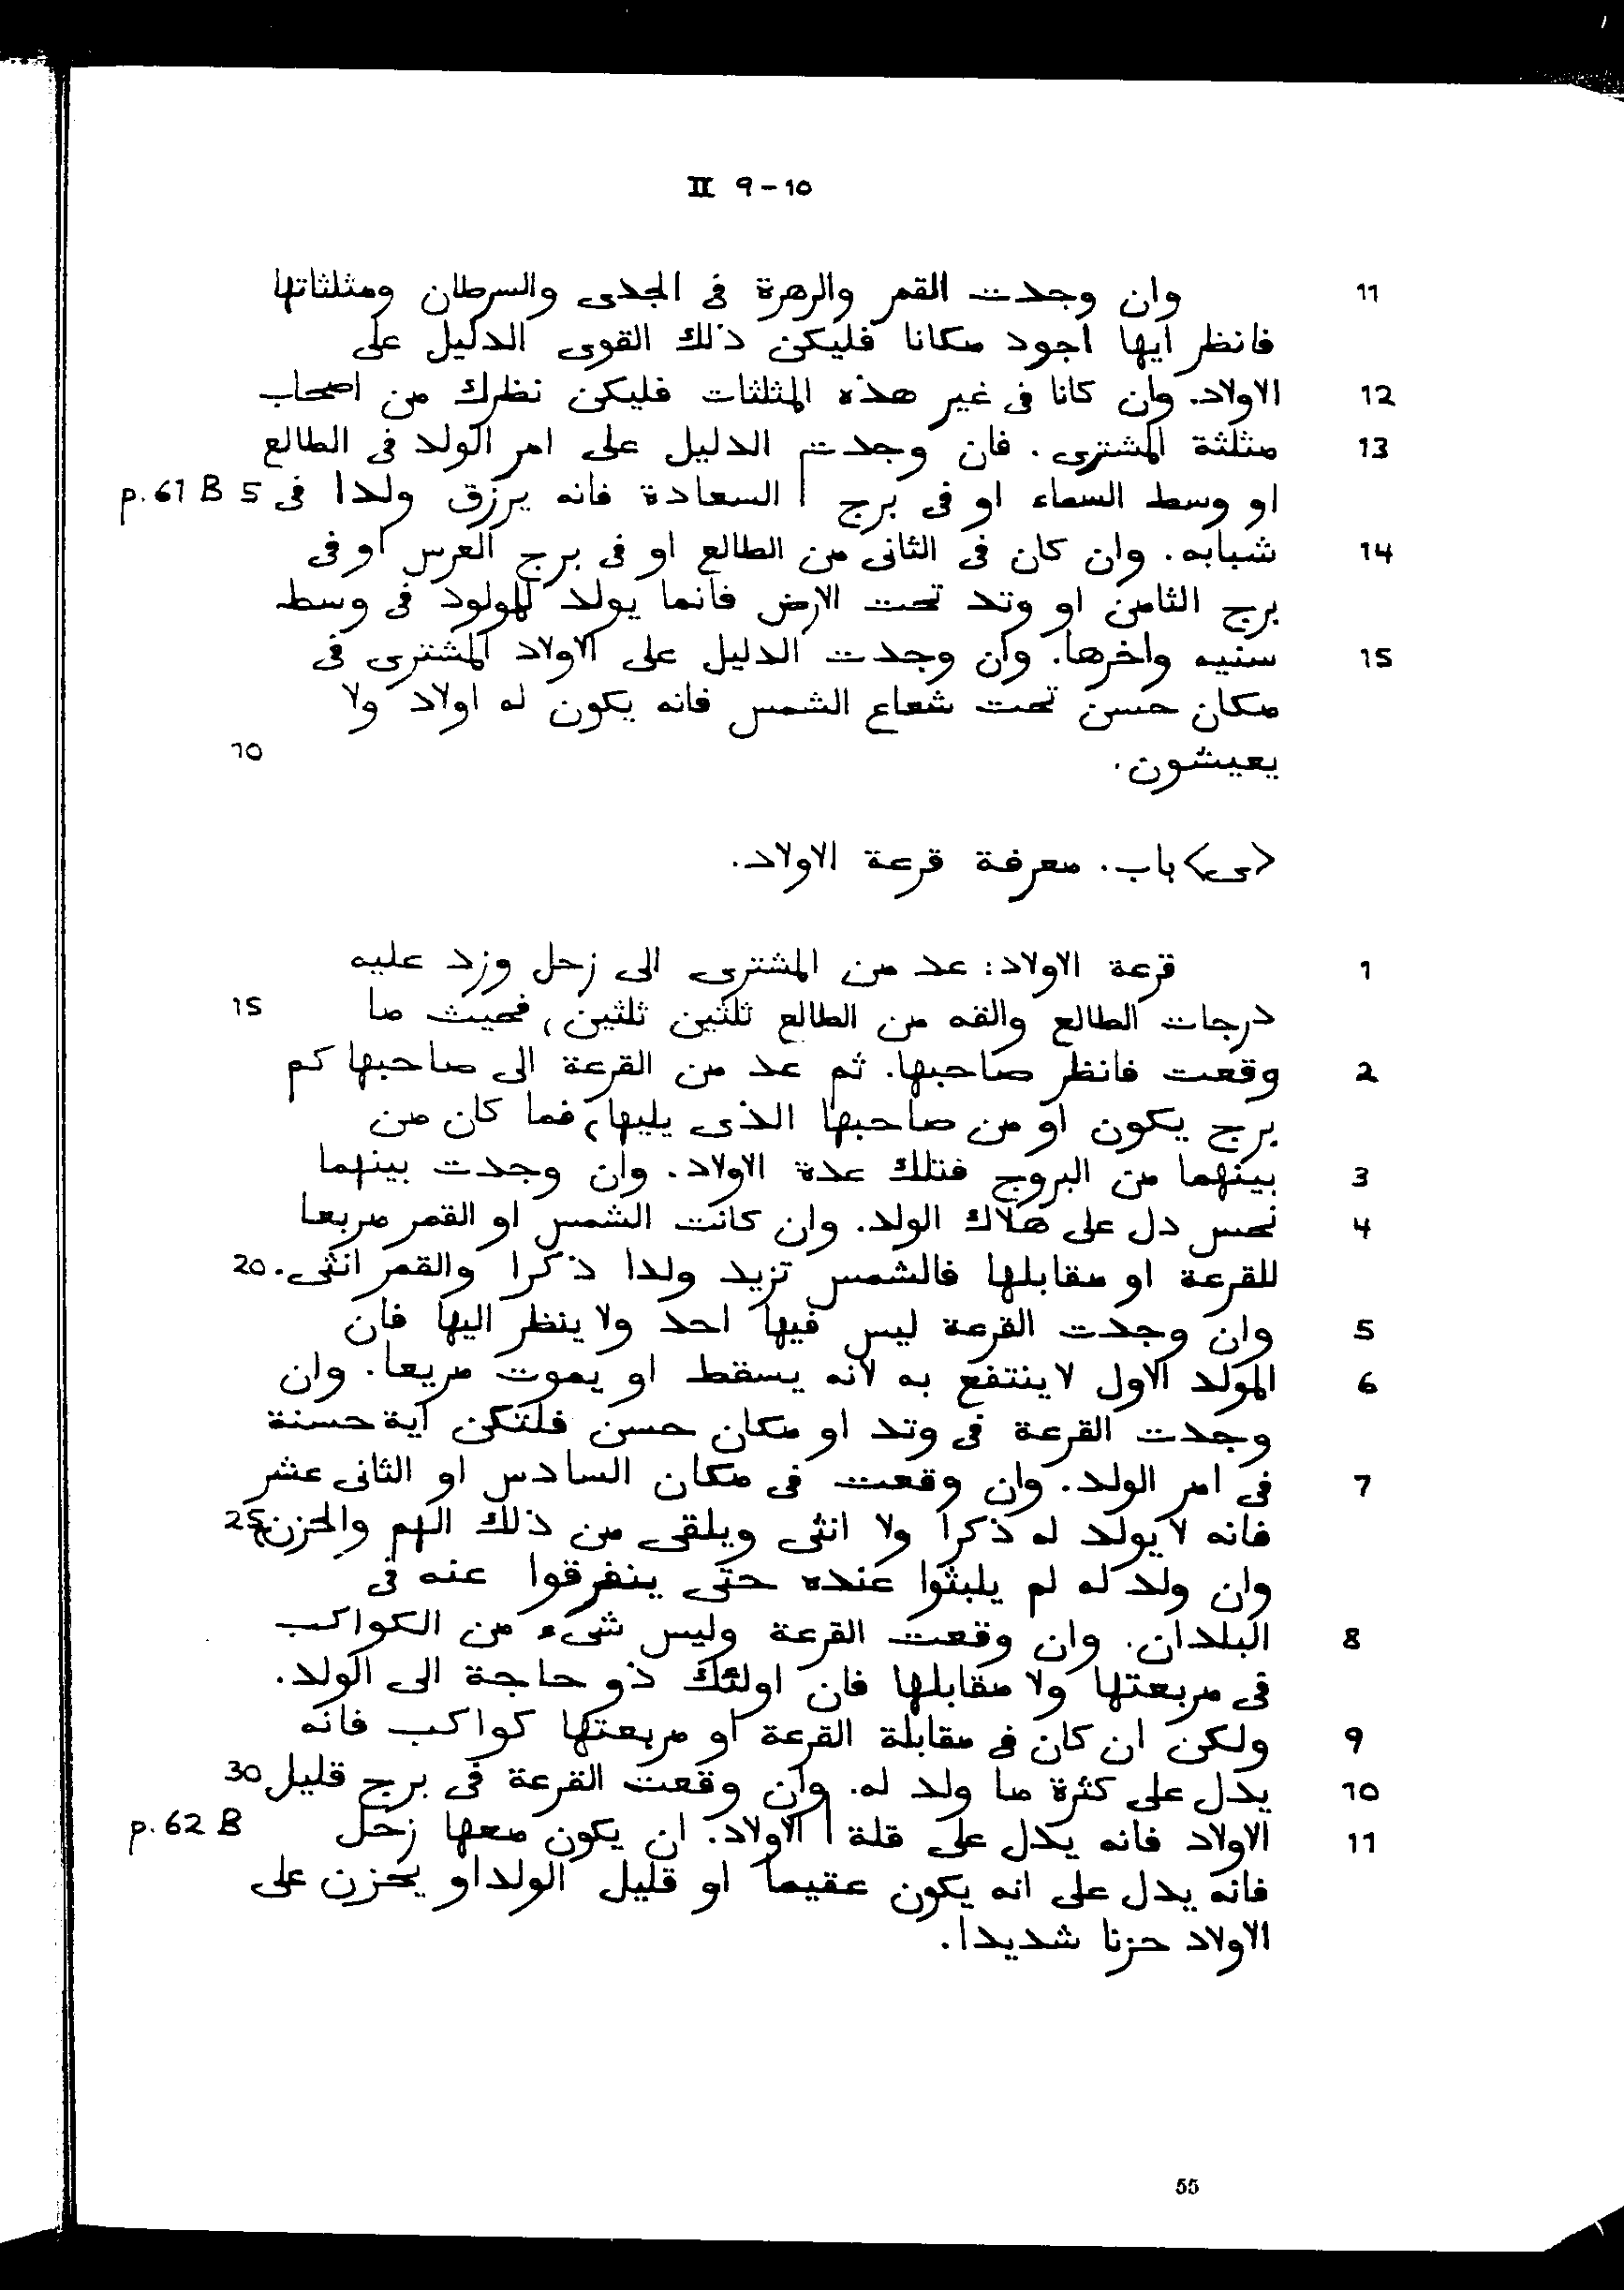 II 9-10
وان وجدت القمر والزهرة فى الجدى والسرطان ومثلثاتها 11
فانظر ايها اجود مكانا فليكن ذلك القوى الدليل على
الاولاد. وان كانا فى غير هذه المثلثات فليكن نظرك من اصحاب 12
مثلثة المشترى. فان وجدت الدليل على امر الولد فى الطالع 13
او وسط السماء او فى برج | السعادة فانه يرزق ولدا فى 5 p.61 B
شبابه. وان كان فى الثانى من الطالع او فى برج العرس او فى 14
برج الثامن او وتد تحت الارض فانما يولد للمولود فى وسط
سنيه واخرها. وان وجدت الدليل على الاولاد المشترى فى 15
مكان حسن تحت شعاع الشمس فانه يكون له اولاد ولا
يعيشون. 10
<ى> باب. معرفة قرعة الاولاد.
قرعة الاولاد: عد من المشترى الى زحل وزد عليه 1
درجات الطالع والقه من الطالع ثلثين ثلثين، فحيث ما 15
وقعت فانظر صاحبها. ثم عد من القرعة الى صاحبها كم 2
برج يكون او من صاحبها الذى يليها، فما كان من
بينهما من البروج فتلك عدة الاولاد. وان وجدت بينهما 3
نحس دل على هلاك الولد. وان كانت الشمس او القمر مربعا 4
للقرعة او مقابلها فالشمس تزيد ولدا ذكرا والقمر انثى. 20
وان وجدت القرعة ليس فيها احد ولا ينظر اليها فان 5
المولد الاول لا ينتفع به لانه يسقط او يموت مريعا. وان 6
وجدت القرعة فى وتد او مكان حسن فلتكن آية حسنة
فى امر الولد. وان وقعت فى مكان السادس او الثانى عشر 7
فانه لا يولد له ذكرا ولا انثى ويلقى من ذلك الهم والحزن، 25
وان ولد له لم يلبثوا عنده حتى ينفرقوا عنه فى
البلدان. وان وقعت القرعة وليس شىء من الكواكب 8
فى مربعتها ولا مقابلها فان اولئك ذو حاجة الى الولد.
ولكن ان كان فى مقابلة القرعة او مربعتها كواكب فانه 9
يدل على كثرة ما ولد له. وان وقعت القرعة فى برج قليل 30 10
الاولاد فانه يدل على قلة | الاولاد. ان يكون معها زحل 11 p.62 B
فانه يدل على انه يكون عقيما او قليل الولد او يحزن على
الاولاد حزنا شديدا.
55